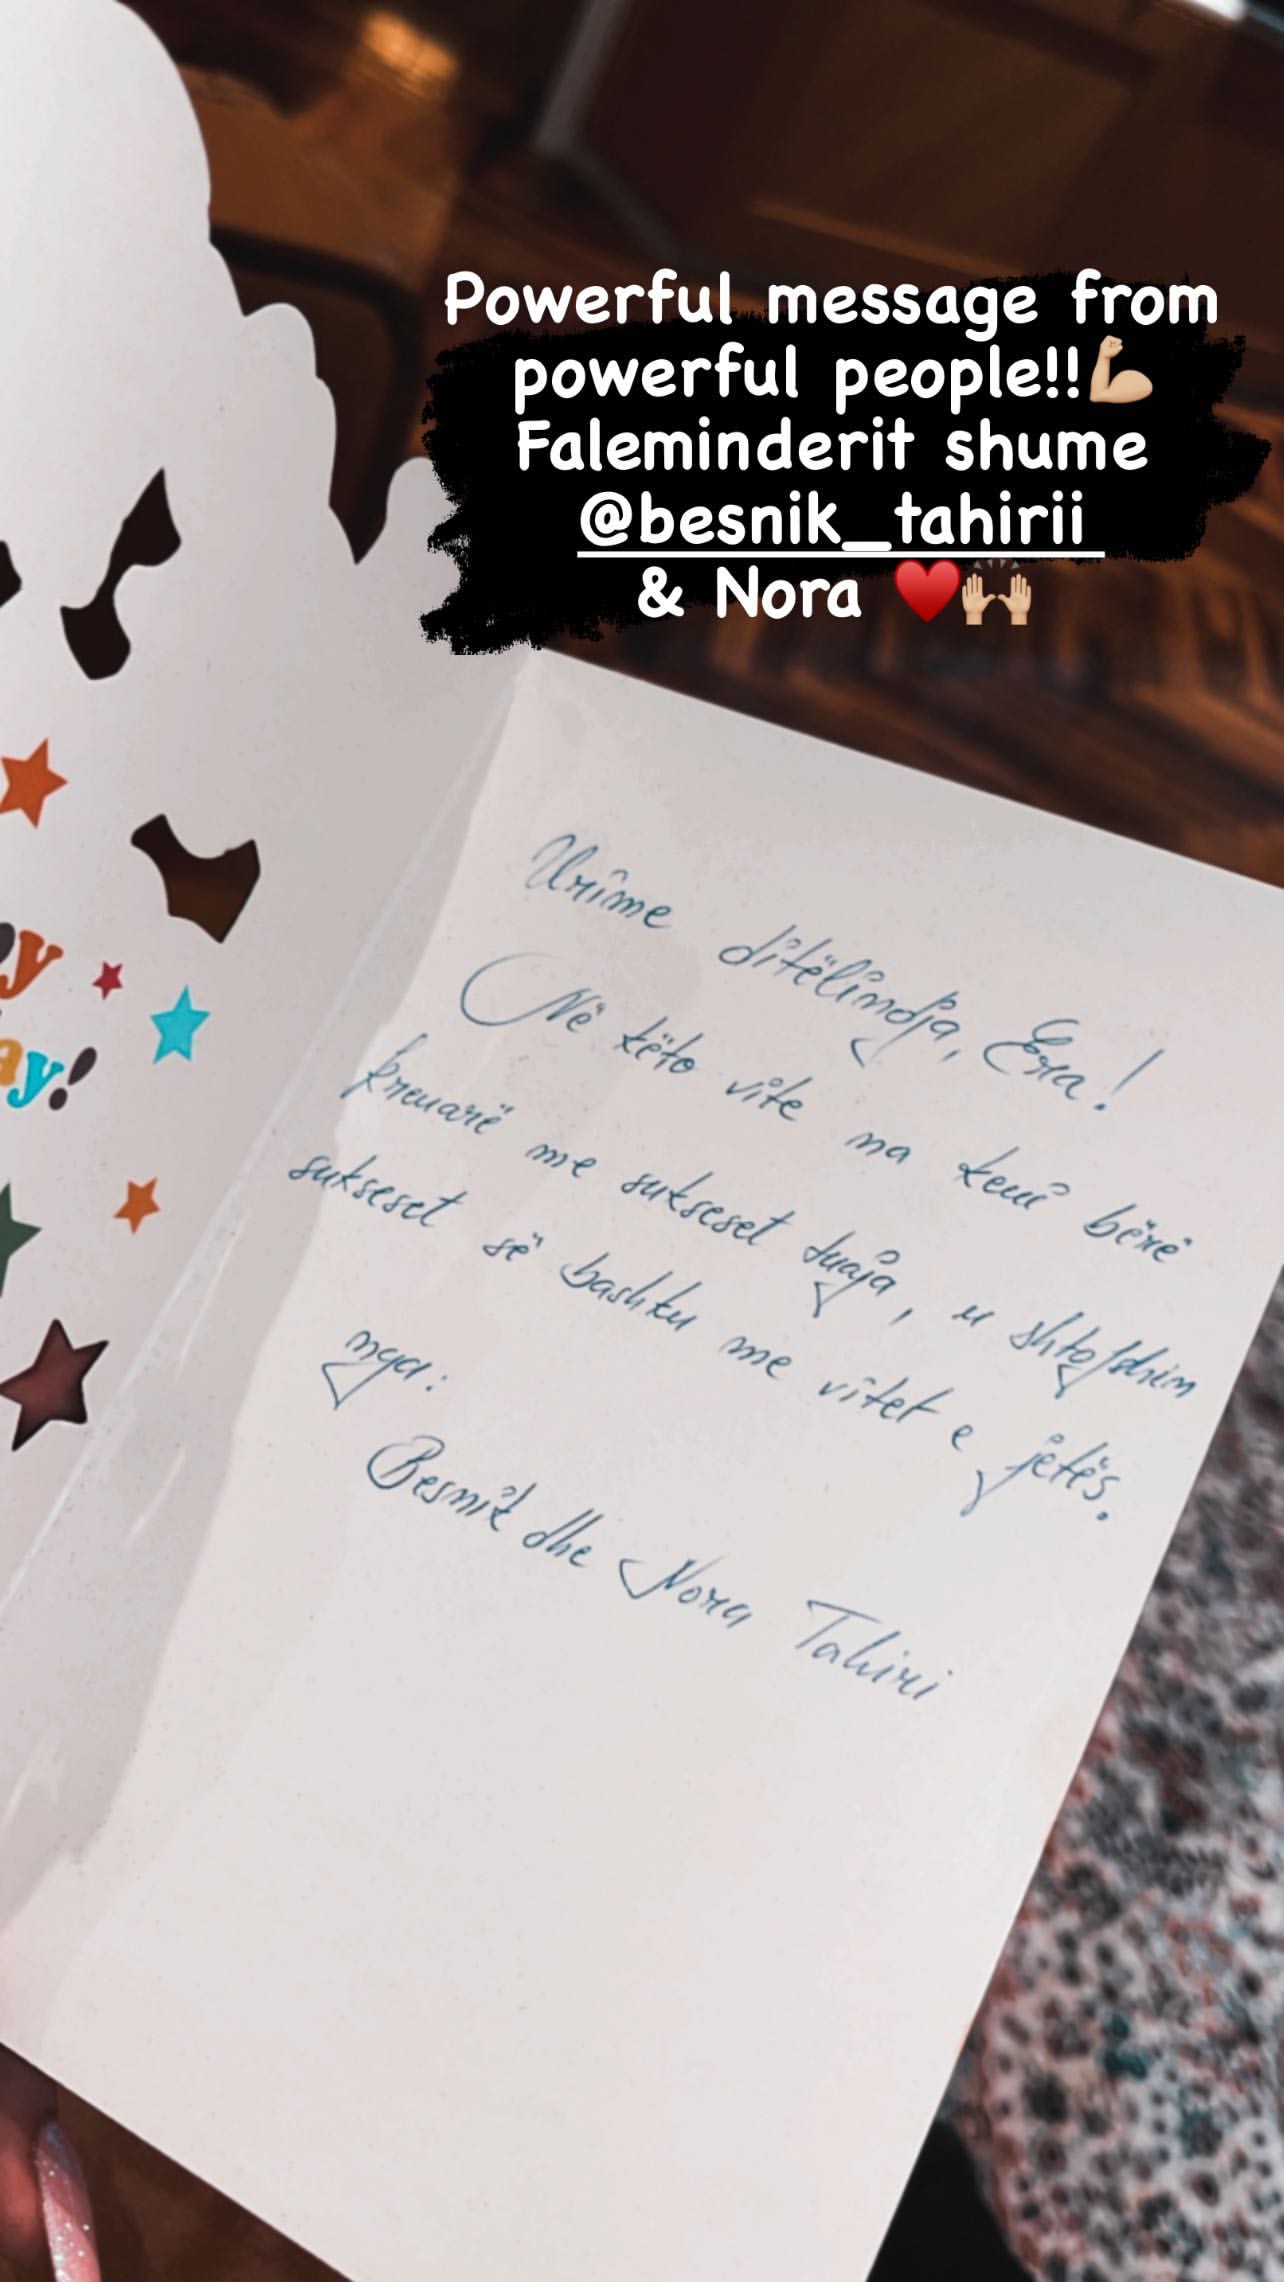 Powerful message from
powerful people!!💪🏼
Faleminderit shume
@besnik_tahirii
& Nora ❤️🙌🏼
y
ay!
Urime ditëlindja, Era!
Në këto vite na keni bërë
krenarë me sukseset tuaja, u shtofshin
sukseset së bashku me vitet e jetës.
nga:
Besnik dhe Nora Tahiri